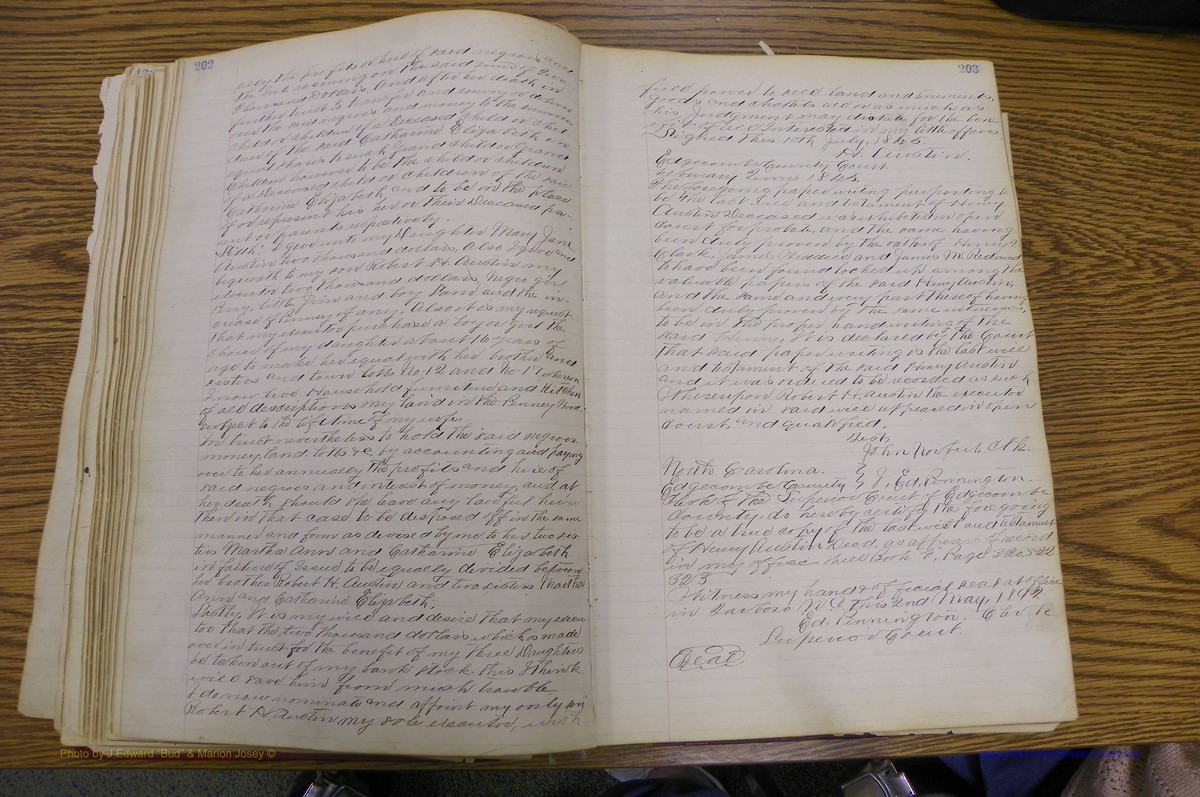 202
over the profits or hire of said negroes and
the Int. accruing on the said sum of Two
thousand dollars. And after her death in
further trust to transfer and convey or deliver
over the said negroes and money to the surviving
child or children if a Deceased child or chil-
dren of the said Catharine Elizabeth in
equal shares to such grand child or grand
children however to be the child or children
of a Deceased child or children of the said
Catharine Elizabeth and to be in the place
of or representing his her or their Deceased pa-
rent or parents respectively.
I give unto my Daughter Mary Jane
Austin two thousand dollars, also I give and
bequeath to my son Robert H. Austin my
executor two thousand dollars, negro girl
little and boy Sam and the in-
crease of if any. Also it is my request
that my executor purchase a boy or girl the
choice of my daughter about 16 years of
age to make her equal with her brother and
sisters and town lotts No. 12 and No. 17 whereon
I now live. Household furniture and Kitchen
of all descriptions my land in the Penney Wood.
subject to the life time of my wife.
In trust nevertheless to hold the said negroes
money, land lotts &c. by accounting and paying
over to her annually the profits and hire of
said negroes and interest of money and at
her death should she leave any lawful heirs
then in that case to be disposed off in the same
manner and form as devised by me to her two sis-
ters Martha Ann and Catharine Elizabeth
in failure of issue to be equally divided between
her brother Robert H. Austin and two sisters Martha
Ann and Catharine Elizabeth.
Lastly, It is my will and desire that my execu-
tor that the two thousand dollars which is made
over in trust for the benefit of my three Daughters
be taken out of my bank stock. this I think
will save him from much trouble
I do now nominate and appoint my only son
Robert H. Austin my sole executor, with
203
full power to sell land and tenements,
goods and chattels all or as much as
his Judgment may dictate for the ben-
efit of all Interested in my little affairs.
Signed This 10th July, 1845.
H. Austin.
Edgecombe County Court
February Term 1846.
The foregoing paper writing purporting to
be the last will and testament of Henry
Austin Deceased was exhibited in open
court for probate, and the same having
been duly proved by the oaths of Henry
Clark, James Weddell and James M. Redmond
to have been found locked up among the
valuable papers of the said Henry Austin,
and the same and every part thereof having
been duly proven by the same witnesses,
to be in the proper handwriting of the
said Henry, it is declared by the Court
that said paper writing is the last will
and testament of the said Henry Austin
and it was ordered to be recorded as such
Whereupon Robert H. Austin the executor
named in said will appeared in open
court, and qualified.
Test,
John Norfleet Clk.
North Carolina.
Edgecombe County I, Ed. Pennington
Clerk of the Superior Court of Edgecombe
County, do hereby certify the foregoing
to be a true copy of the last will and testament
of Henry Austin Decd. as appears of record
in my office Will Book Page 320, 322
323
Witness my hand & official seal at office
in Tarboro N.C. this 2nd May, 1892
Ed. Pennington, Clerk
Superior Court.
Seal
Photo by J Edward "Bud" & Marion Josey ©